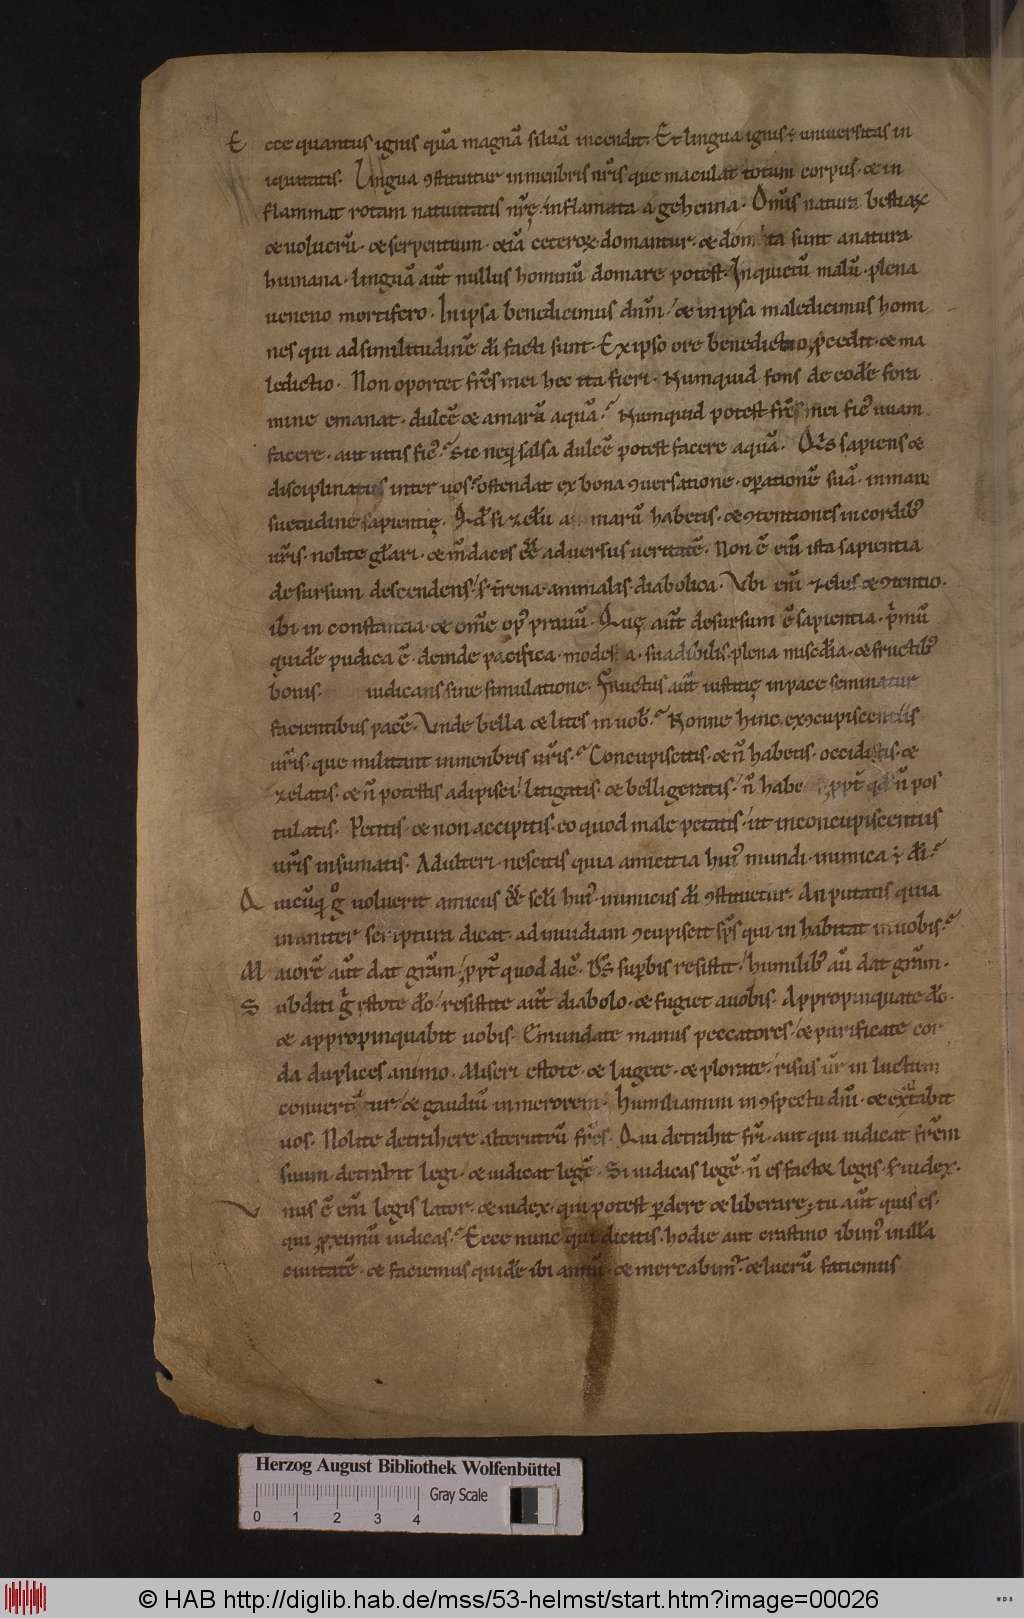 Ecce quantus ignis quā magnā siluā incendit. Et lingua ignis ÷ uniuersitas in
iquitatis. Lingua ꝯstituitur in menbris nr̄is que maculat totum corpus. & in
flammat rotam natiuitatis nr̄ę. inflamata a gehenna. Om̄s natura bestiaꝝ
& uolucrū. & serpentium. & iā ceteroꝝ domantur. & domita sunt a natura
humana. linguā aūt nullus hominū domare potest. Inquietū malū. plena
ueneno mortifero. In ipsa benedicimus dnm̄. & in ipsa maledicimus homi
nes qui ad similitudinē dī facti sunt. Ex ipso ore benedictio ꝓcedit. & ma
ledictio. Non oportet fr̄es mei hec ita fieri. Numquid fons de eodē fora
mine emanat. dulcē & amarā aquā? Numquid potest fr̄es mei fieꝰ uuam
facere. aut uitis fieꝰ? Sic neqꝫ salsa dulcē potest facere aquā. Qͥs sapiens &
disciplinatus inter uos? ostendat ex bona ꝯuersatione. oꝑationē suā. in man
suetudine sapientię. Qd̄ si zelū a marū habetis. & ꝯtentiones in cordibꝰ
ur̄is. nolite gl̄ari. & m̄daces eē aduersus ueritatē. Non ē enī ista sapientia
desursum descendens. s; t̄rena. animalis. diabolica. Vbi enī zelus & ꝯtentio.
ibi in constantia. & om̄e opꝰ prauū. Quę aūt desursum ē sapientia. pͥmū
quidē pudica ē. deinde pacifica. modesta. suadibilis. plena miscd̄ia. & fructibꝰ
bonis. iudicans sine simulatione. Fructus aūt iustitię in pace seminatur
facientibus pacē. Vnde bella & lites in uob̄? Nonne hinc. ex ꝯcupiscentiis
ur̄is. que militant in menbris ur̄is? Concupiscitis. & n̄ habetis. occiditis. &
zelatis. & n̄ potestis adipisci. litigatis. & belligeratis. n̄ habe ꝓpt̄ qd̄ n̄ pos
tulatis. Petitis. & non accipitis. eo quod male petatis. ut in concupiscentiis
ur̄is insumatis. Adulteri. nescitis quia amicitia huiꝰ mundi. inimica ÷ dī?
Quicūqꝫ gͦ uoluerit amicus eē scl̄i huiꝰ. inimicus dī ꝯstituetur. An putatis quia
inaniter scriptura dicat. ad inuidiam ꝯcupiscit sp̄s qui in habitat in uobis?
Maiorē aūt dat gr̄am. ꝓpt̄ quod dicꝰ. Ds̄ suꝑbis resistit. humilibꝰ aū dat gr̄am.
Subditi gͥ estote dō. resistite aūt diabolo. & fugiet a uobis. Appropinquate dō.
& appropinquabit uobis. Emundate manus peccatores. & purificate cor
da duplices animo. Miseri estote. & lugete. & plorate. risus ur̄ in luctum
conuertatur. & gaudiū in merorem. Humiliamini in ꝯspectu dnī. & exaltabit
uos. Nolite detrahere alterutrū fr̄es. Qui detrahit fr̄i. aut qui iudicat fr̄em
suum. detrahit legi. & iudicat legē. Si iudicas legē. n̄ es factor legis. s; iudex.
Vnus ē enī legis lator. & iudex. qui potest ꝑdere & liberare. tu aūt quis es.
qui ꝓximū iudicas? Ecce nunc qui dicitis. hodie aut crastino ibimꝰ in illā
ciuitatē. & faciemus quidē ibi annū. & mercabimꝰ. & lucrū faciemus
Herzog August Bibliothek Wolfenbüttel
Gray Scale
0 1 2 3 4
© HAB http://diglib.hab.de/mss/53-helmst/start.htm?image=00026